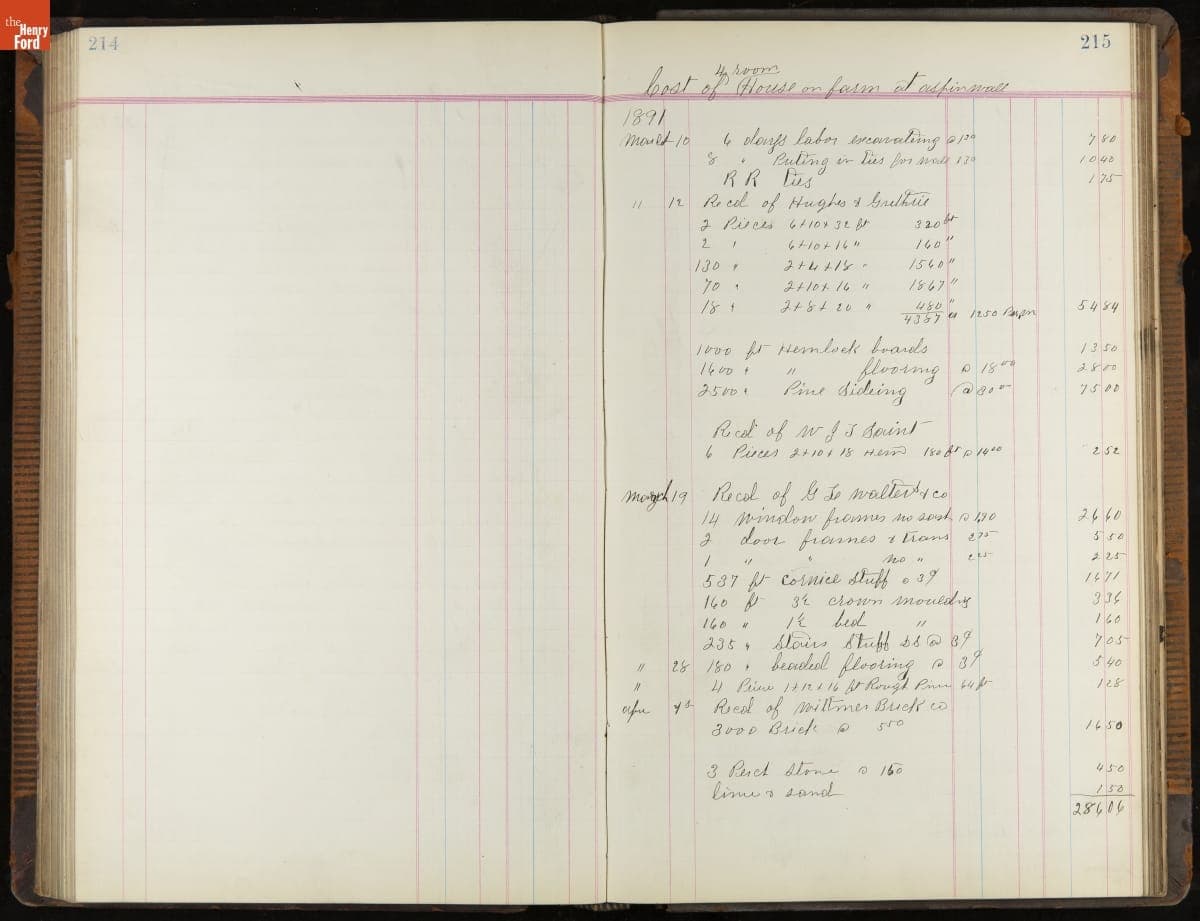 the
Henry
Ford
214
215
4 room
Cost of House on farm at aspinwall
1891
March 10 6 days labor excavating @ 1 30 7 80
8 " Puting in ties for wall 1 30 10 40
R R Ties 1 75
" 12 Recd of Hughes & Guthrie
2 Pieces 6+10+32 ft 320 ft
2 " 6+10+16 " 160 "
130 " 2+4+18 " 1560 "
70 " 2+10+16 " 1867 "
18 " 2+8+20 " 480 "
4387 @ 1250 Per m 54 84
1000 ft Hemlock boards 13 50
1600 " " flooring @ 18 00 28 00
2500 " Pine Sideing @ 30 00 75 00
Recd of W J S Saint
6 Pieces 2+10+18 Hem 180 ft @ 14 00 2 52
March 19 Recd of G L Walters & co
14 Window frames no sash @ 1,90 26 60
2 door frames & trans 2 75 5 50
1 " " no " 2 25 2 25
537 ft Cornice Stuff @ 3¢ 16 71
160 ft 3½ crown moulding 3 36
160 " 1½ bed " 1 60
235 " Stairs Stuff SS @ 3¢ 7 05
" 28 180 " beaded flooring @ 3¢ 5 40
" 4 Pine 1+12+16 ft Rough Pine 64 ft 1 28
Apr Recd of Wittmer Brick co
3000 Brick @ 5 50 16 50
3 Perch Stone @ 1 50 4 50
lime & sand 1 50
286 06